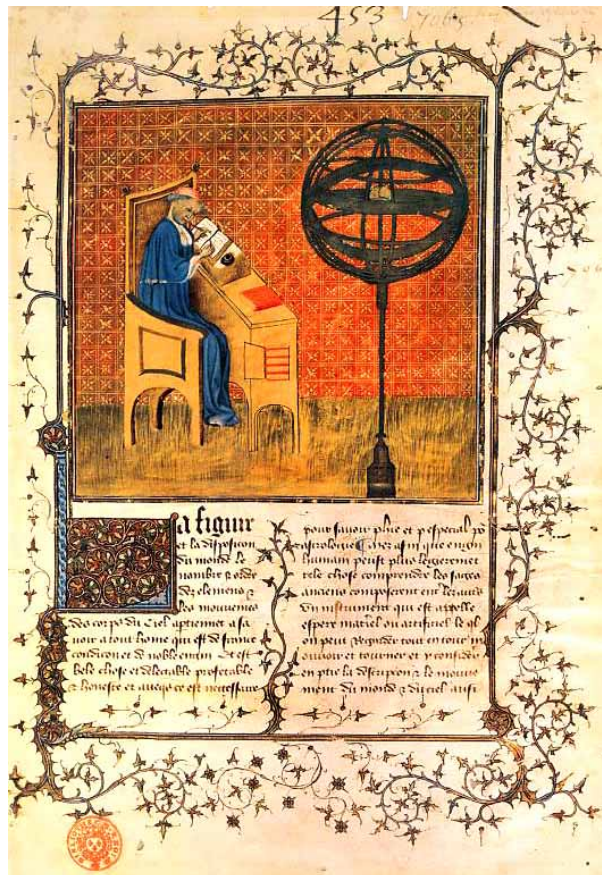 453
7065
a figure
et la disposicion
du monde le
nombre & ordre
des elemens &
les mouvemens
des corps du ciel aptient a sa
voir a tout home qui est de franche
condicion et de noble engin Et est
bele chose et delectable profetable
& honeste et avecques ce est necessaire
pour savoir et p especial po
astrologie afin que engin
humain peust plus legierement
tele chose comprendre les sages
anciens composerent
un instrument qui est appelle
espere materiel ou artificiel le ql
on peut regarder tout entour m
ouvoir et tourner et y considerer
en ptie la descripcion & le mouve
ment du monde & du ciel aussi